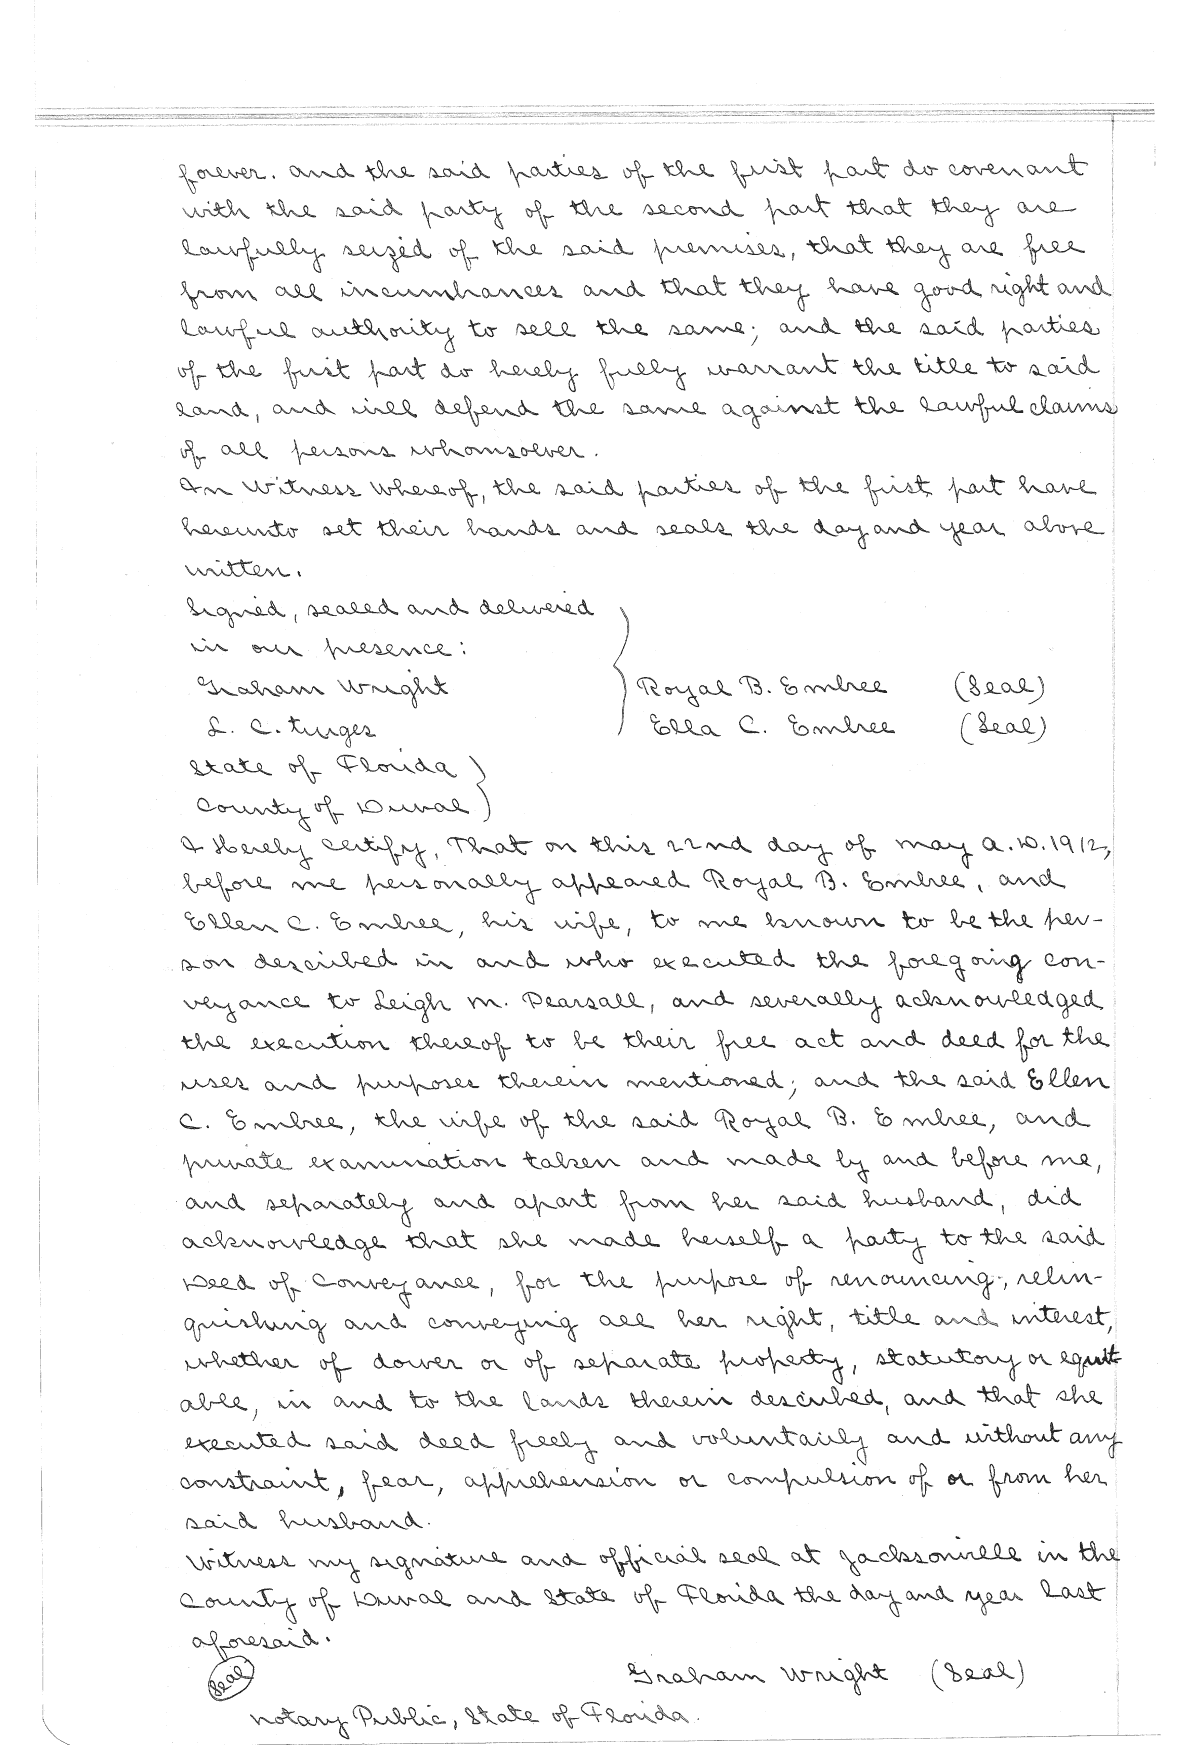 forever. and the said parties of the first part do covenant
with the said party of the second part that they are
lawfully seized of the said premises, that they are free
from all incumbrances and that they have good right and
lawful authority to sell the same; and the said parties
of the first part do hereby fully warrant the title to said
land, and will defend the same against the lawful claims
of all persons whomsoever.
In Witness Whereof, the said parties of the first part have
hereunto set their hands and seals the day and year above
written.
Signed, sealed and delivered
in our presence:
Graham Wright Royal B. Embree (Seal)
L. C. Ella C. Embree (Seal)
State of Florida
County of Duval
I Hereby Certify, That on this 22nd day of May A.D. 1912,
before me personally appeared Royal B. Embree, and
Ellen C. Embree, his wife, to me known to be the per-
son described in and who executed the foregoing con-
veyance to Leigh M. Pearsall, and severally acknowledged
the execution thereof to be their free act and deed for the
uses and purposes therein mentioned; and the said Ellen
C. Embree, the wife of the said Royal B. Embree, and
private examination taken and made by and before me,
and separately and apart from her said husband, did
acknowledge that she made herself a party to the said
Deed of Conveyance, for the purpose of renouncing, relin-
quishing and conveying all her right, title and interest,
whether of dower or of separate property, statutory or equit
able, in and to the lands therein described, and that she
executed said deed freely and voluntarily and without any
constraint, fear, apprehension or compulsion of or from her
said husband.
Witness my signature and official seal at Jacksonville in the
County of Duval and State of Florida the day and year last
aforesaid.
Seal Graham Wright (Seal)
Notary Public, State of Florida.